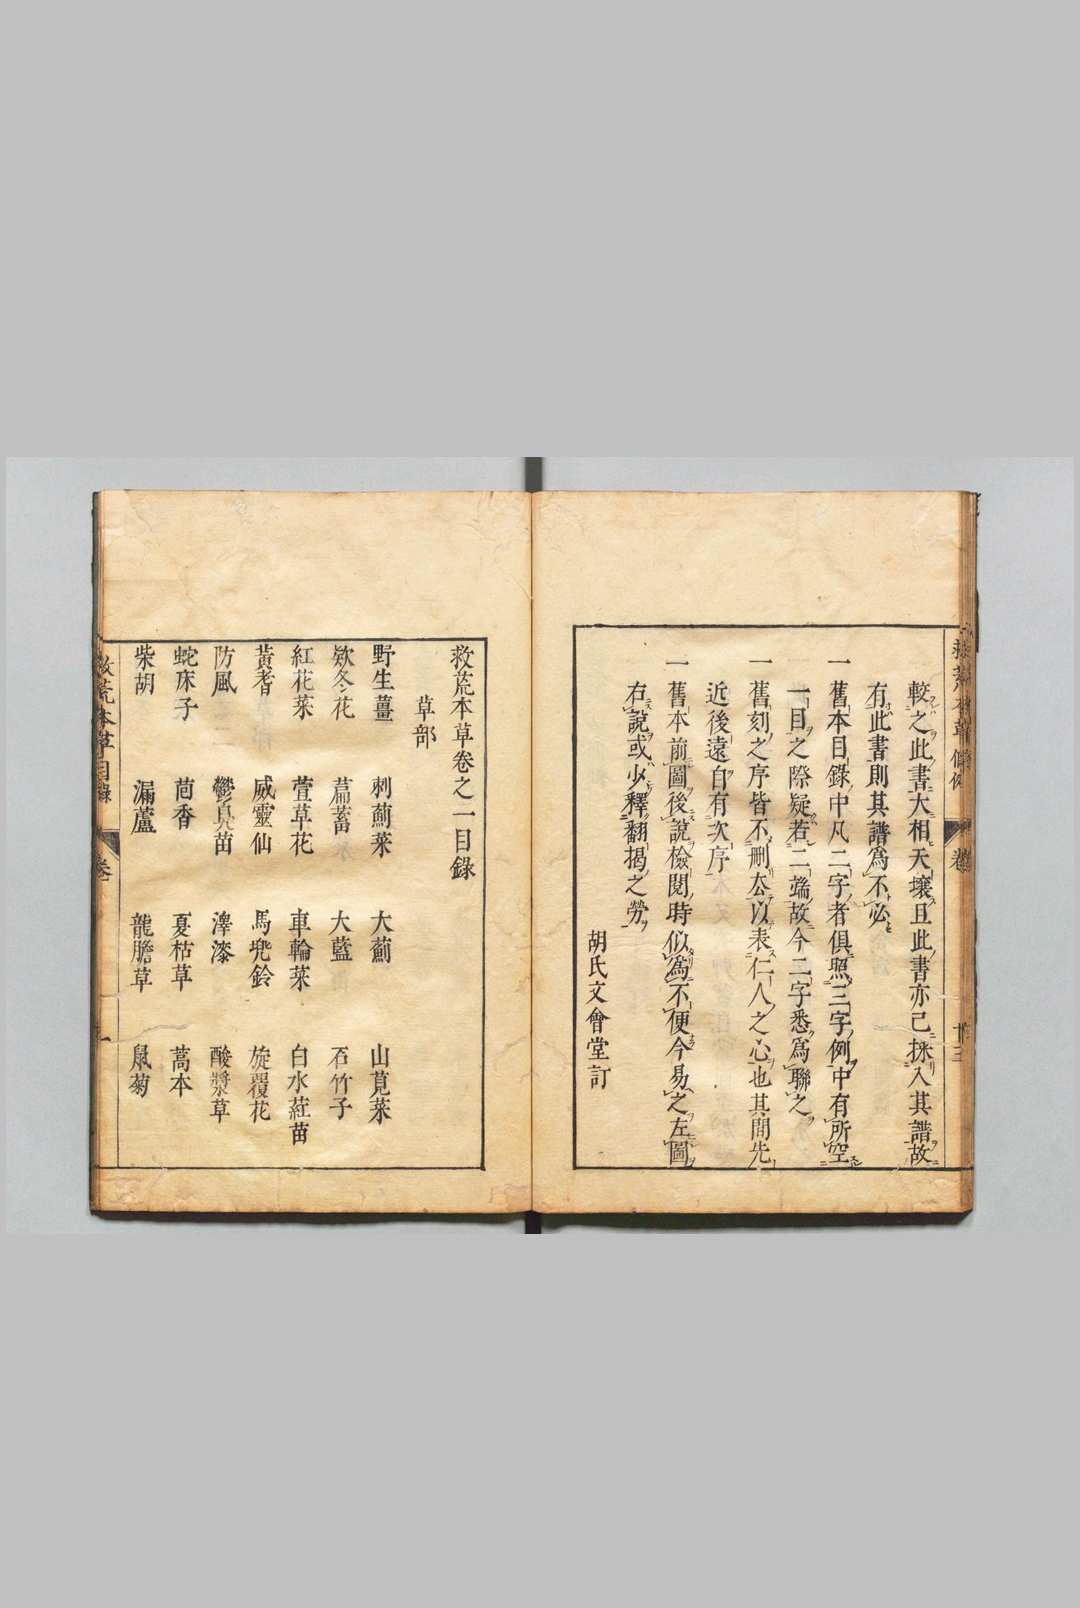 較之此書大相天壤且此書亦已採入其譜故
有此書則其譜爲不必
一舊本目錄中凡二字者俱照三字例中有所空
一目之際疑若二端故今二字悉爲聯之
一舊刻之序皆不刪厺以表仁人之心也其間先
近後遠自有次序
一舊本前圖後說檢閱時似爲不便今易之左圖
右說或少釋翻揭之勞
胡氏文會堂訂
救荒本草卷之一目錄
草部
野生薑 刺薊菜 大薊 山莧菜
欵冬花 萹蓄 大藍 石竹子
紅花菜 萱草花 車輪菜 白水葒苗
黃耆 威靈仙 馬兠鈴 旋覆花
防風 鬱臭苗 澤漆 酸漿草
蛇床子 茴香 夏枯草 藁本
柴胡 漏蘆 龍膽草 鼠菊
救荒本草目錄 卷一